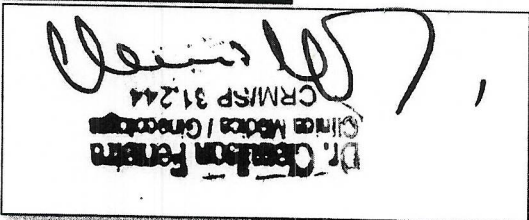 Dr. Claudson Ferreira
Clínica Médica / Ginecologia
CRM/SP 31.244